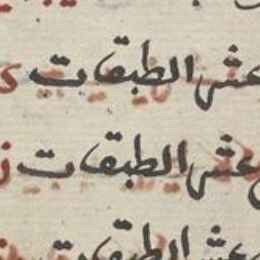 عشر الطبقات
عشر الطبقات
عشر الطبقات